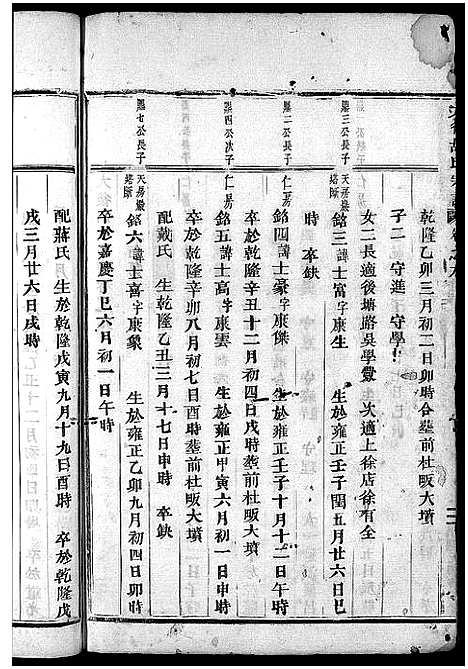 乾隆乙卯三月初二日卯時合塟前杜畈大墳
子二 守進 守學
女二長適後塘路吳學豊 次適上徐店徐有全
公長子
天房
銘三諱士富字康生 生於雍正壬子閏五月廿六日巳
時 卒缺
二公長子 仁房
銘四諱士豪字康傑 生於雍正壬子十月十二日午時
卒於乾隆辛丑十二月初四日戌時塟前杜畈大墳
四公次子 仁房
銘五諱士高字康雲 生於雍正甲寅六月初一日申時
卒於乾隆辛卯八月初七日酉時塟前杜畈大墳
配戴氏 生乾隆乙丑三月十七日申時 卒缺
七公長子
天房
銘六諱士喜字康象 生於雍正乙卯九月初四日卯時
卒於嘉慶丁巳六月初一日午時
配蔣氏 生於乾隆戊寅九月十九日酉時 卒於乾隆戊
戌三月廿六日戌時